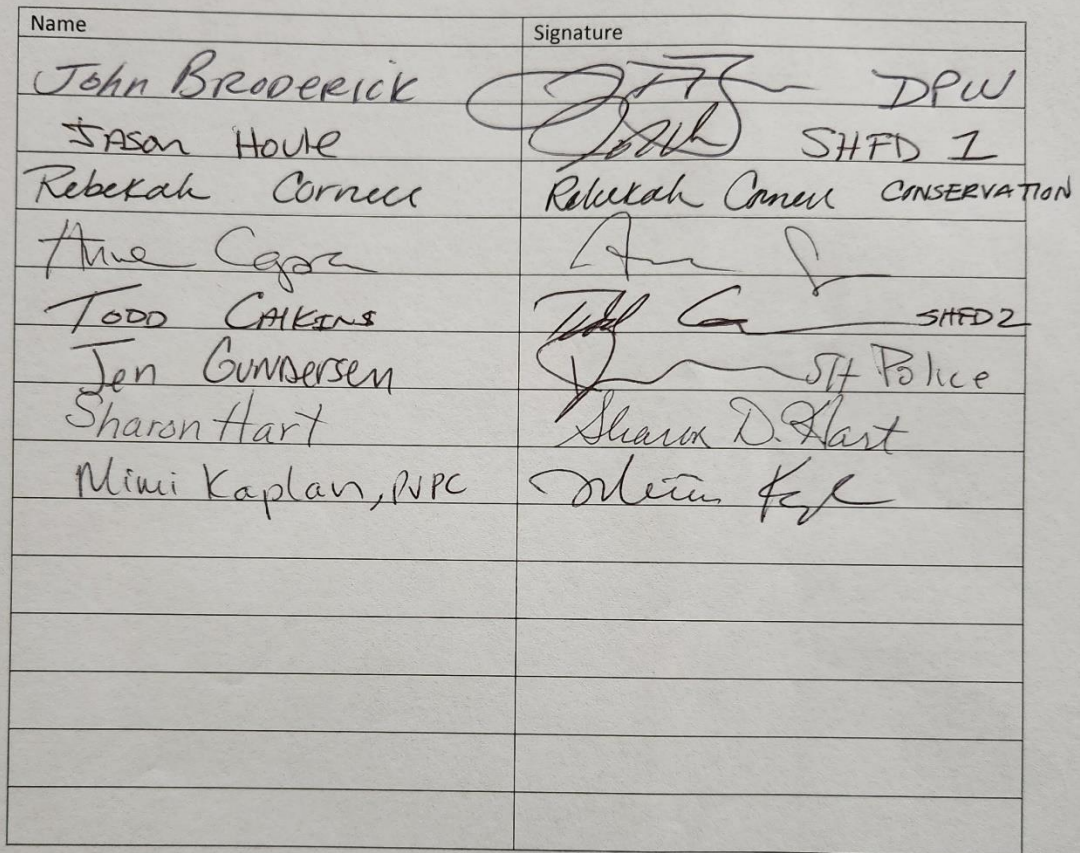 Name Signature
John BRODERICK DPW
JASON HOULE SHFD 1
Rebekah Cornell Rebekah Cornell CONSERVATION
Anne Capra
TODD CALKINS SHFD2
Jen GUNDERSEN SH Police
Sharon Hart Sharon D. Hart
Mimi Kaplan, PVPC